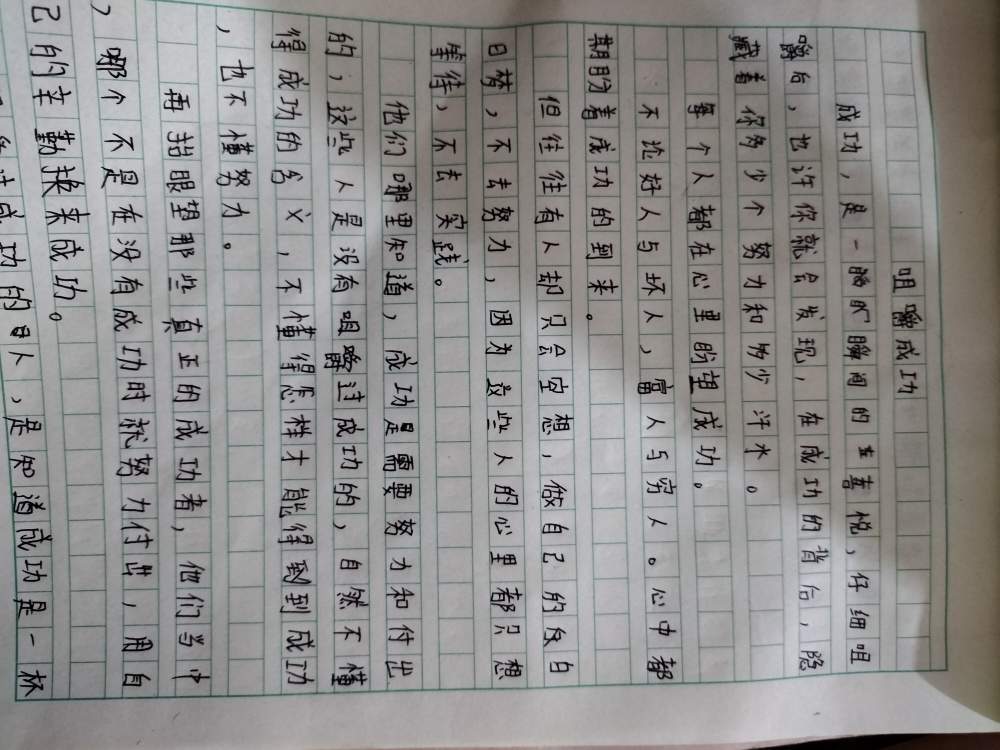 咀嚼成功
成功，是一瞬间的喜悦，仔细咀
嚼后，也许你就会发现，在成功的背后，隐
藏着你多少个努力和多少汗水。
每个人都在心里盼望成功。
不论好人与坏人，富人与穷人。心中都
期盼着成功的到来。
但往往有人却只会空想，做自己的白
日梦，不去努力，因为这些人的心里都只想
等待，不去实践。
他们哪里知道，成功是需要努力和付出
的，这些人是没有咀嚼过成功的，自然不懂
得成功的含义，不懂得怎样才能得到到成功
，也不懂努力。
再抬眼望那些真正的成功者，他们当中
，哪个不是在没有成功时就努力付出，用自
己的辛勤换来成功。
成功的人，是知道成功是一杯